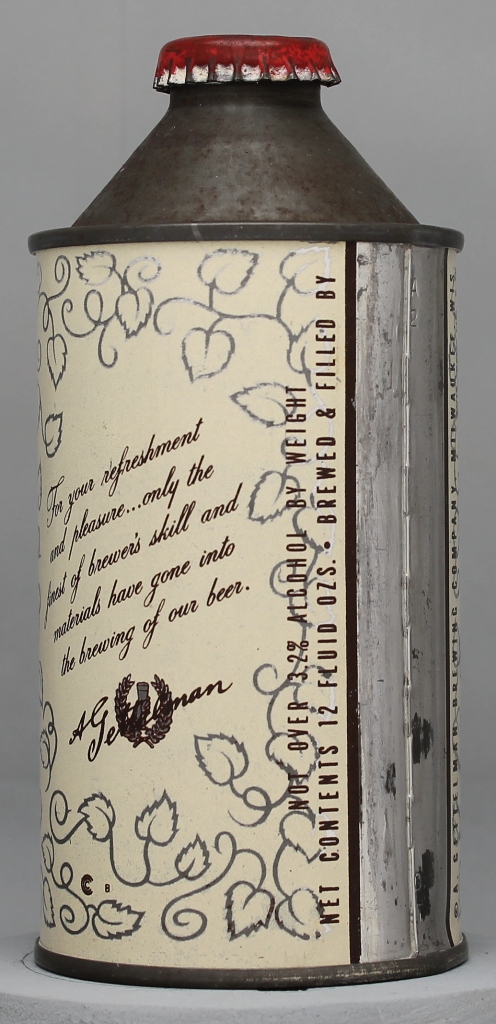 For your refreshment
and pleasure...only the
finest of brewer's skill and
materials have gone into
the brewing of our beer.
A Gettelman
C B
NOT OVER 3.2% ALCOHOL BY WEIGHT
NET CONTENTS 12 FLUID OZS. • BREWED & FILLED BY
© A. GETTELMAN BREWING COMPANY, MILWAUKEE, WIS.
A
2